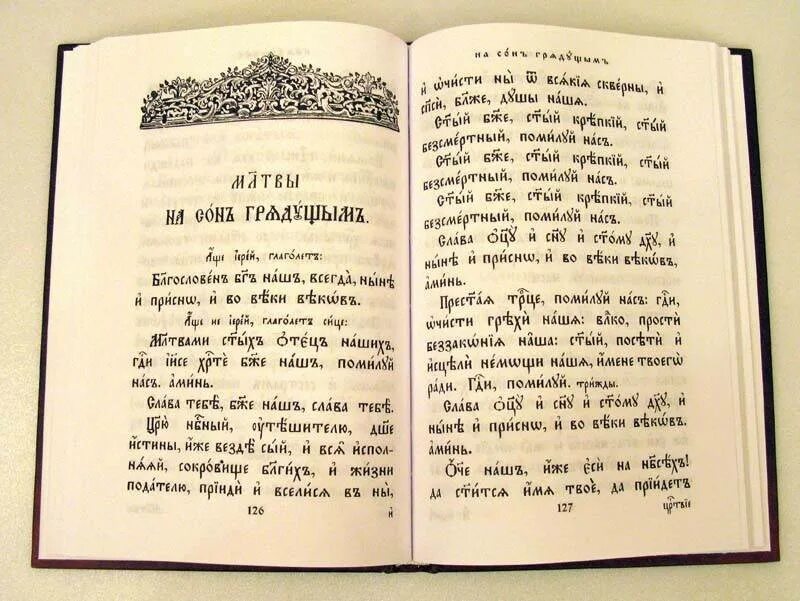 МЛ҃ТВЫ
НА СО́НЪ ГРѦДꙊ́ЩЫМЪ.
А҆́ще і҆ере́й, глаго́летъ:
Бл҃гослове́нъ бг҃ъ на́шъ, всегда̀, ны́нѣ
и҆ при́снѡ, и҆ во вѣ́ки вѣкѡ́въ.
А҆́ще не і҆ере́й, глаго́летъ си́це:
Мл҃твами ст҃ы́хъ ѻ҆тє́цъ на́шихъ,
гдⷭ҇и і҆и҃се хрⷭ҇тѐ бж҃е на́шъ, поми́лꙋй
на́съ. а҆ми́нь.
Сла́ва тебѣ̀, бж҃е на́шъ, сла́ва тебѣ̀.
Цр҃ю̀ нбⷭ҇ный, ᲂу҆тѣ́шителю, дш҃е
и҆́стины, и҆́же вездѣ̀ сы́й, и҆ всѧ̑ и҆сполн-
ѧ́ѧй, сокро́вище бл҃ги́хъ, и҆ жи́зни
пода́телю, прїидѝ и҆ всели́сѧ въ ны̀,
126
и҆
на со́нъ грѧдꙋ́щымъ
и҆ ѡ҆чи́сти ны̀ ѿ всѧ́кїѧ сквє́рны, и҆
сп҃сѝ, бл҃же, дꙋ́шы на́шѧ.
Ст҃ы́й бж҃е, ст҃ы́й крѣ́пкїй, ст҃ы́й
безсме́ртный, поми́лꙋй на́съ.
Ст҃ы́й бж҃е, ст҃ы́й крѣ́пкїй, ст҃ы́й
безсме́ртный, поми́лꙋй на́съ.
Ст҃ы́й бж҃е, ст҃ы́й крѣ́пкїй, ст҃ы́й
безсме́ртный, поми́лꙋй на́съ.
Сла́ва ѻ҆ц҃ꙋ̀ и҆ сн҃ꙋ и҆ ст҃о́мꙋ дх҃ꙋ, и҆
ны́нѣ и҆ при́снѡ, и҆ во вѣ́ки вѣкѡ́въ.
а҆ми́нь.
Прест҃а́ѧ трⷪ҇це, поми́лꙋй на́съ: гдⷭ҇и,
ѡ҆чи́сти грѣхѝ на́шѧ: влⷣко, простѝ
беззакѡ́нїѧ на̑ша: ст҃ы́й, посѣтѝ и҆
и҆сцѣлѝ нє́мѡщи на́шѧ, и҆́мене твоегѡ̀
ра́ди. Гдⷭ҇и, поми́лꙋй. три́жды.
Сла́ва ѻ҆ц҃ꙋ̀ и҆ сн҃ꙋ и҆ ст҃о́мꙋ дх҃ꙋ, и҆
ны́нѣ и҆ при́снѡ, и҆ во вѣ́ки вѣкѡ́въ.
а҆ми́нь.
Ѻ҆́ч҃е на́шъ, и҆́же є҆сѝ на нб҃сѣ́хъ!
да ст҃и́тсѧ и҆́мѧ твоѐ, да прїи́детъ
127
црⷭ҇твїе